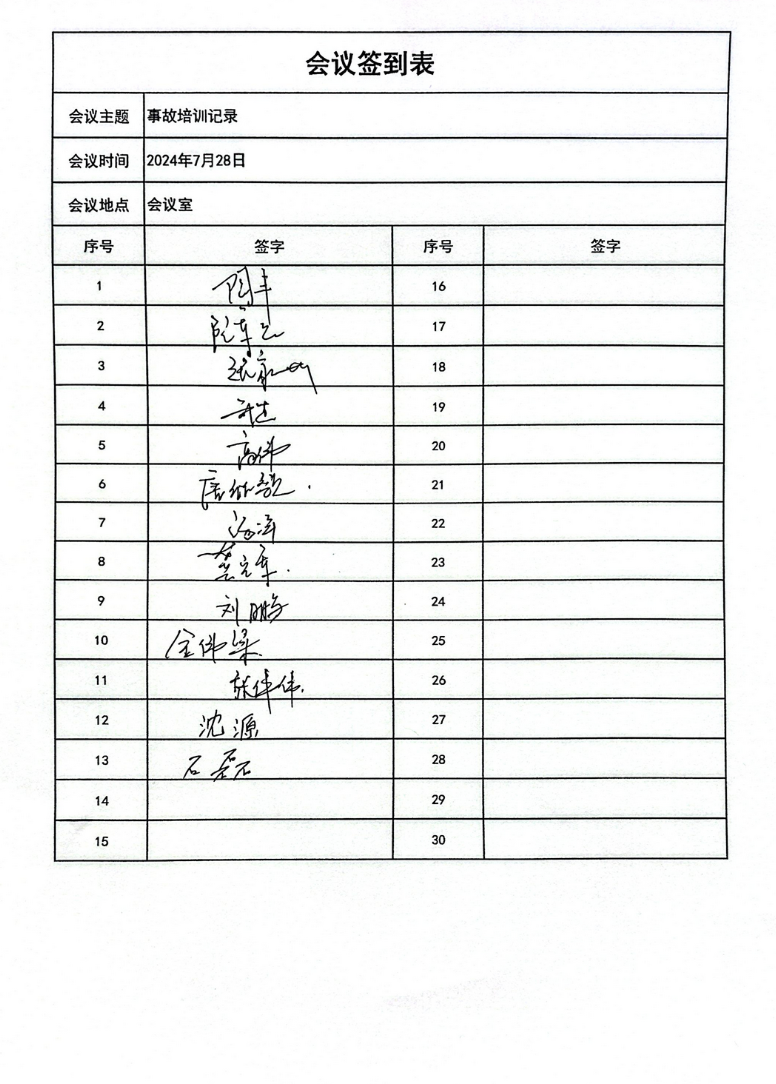 会议签到表
会议主题 事故培训记录
会议时间 2024年7月28日
会议地点 会议室
序号 签字 序号 签字
1 16
2 17
3 18
4 19
5 高伟 20
6 21
7 22
8 23
9 刘鹏 24
10 金伟梁 25
11 张伟伟 26
12 沈源 27
13 石磊 28
14 29
15 30